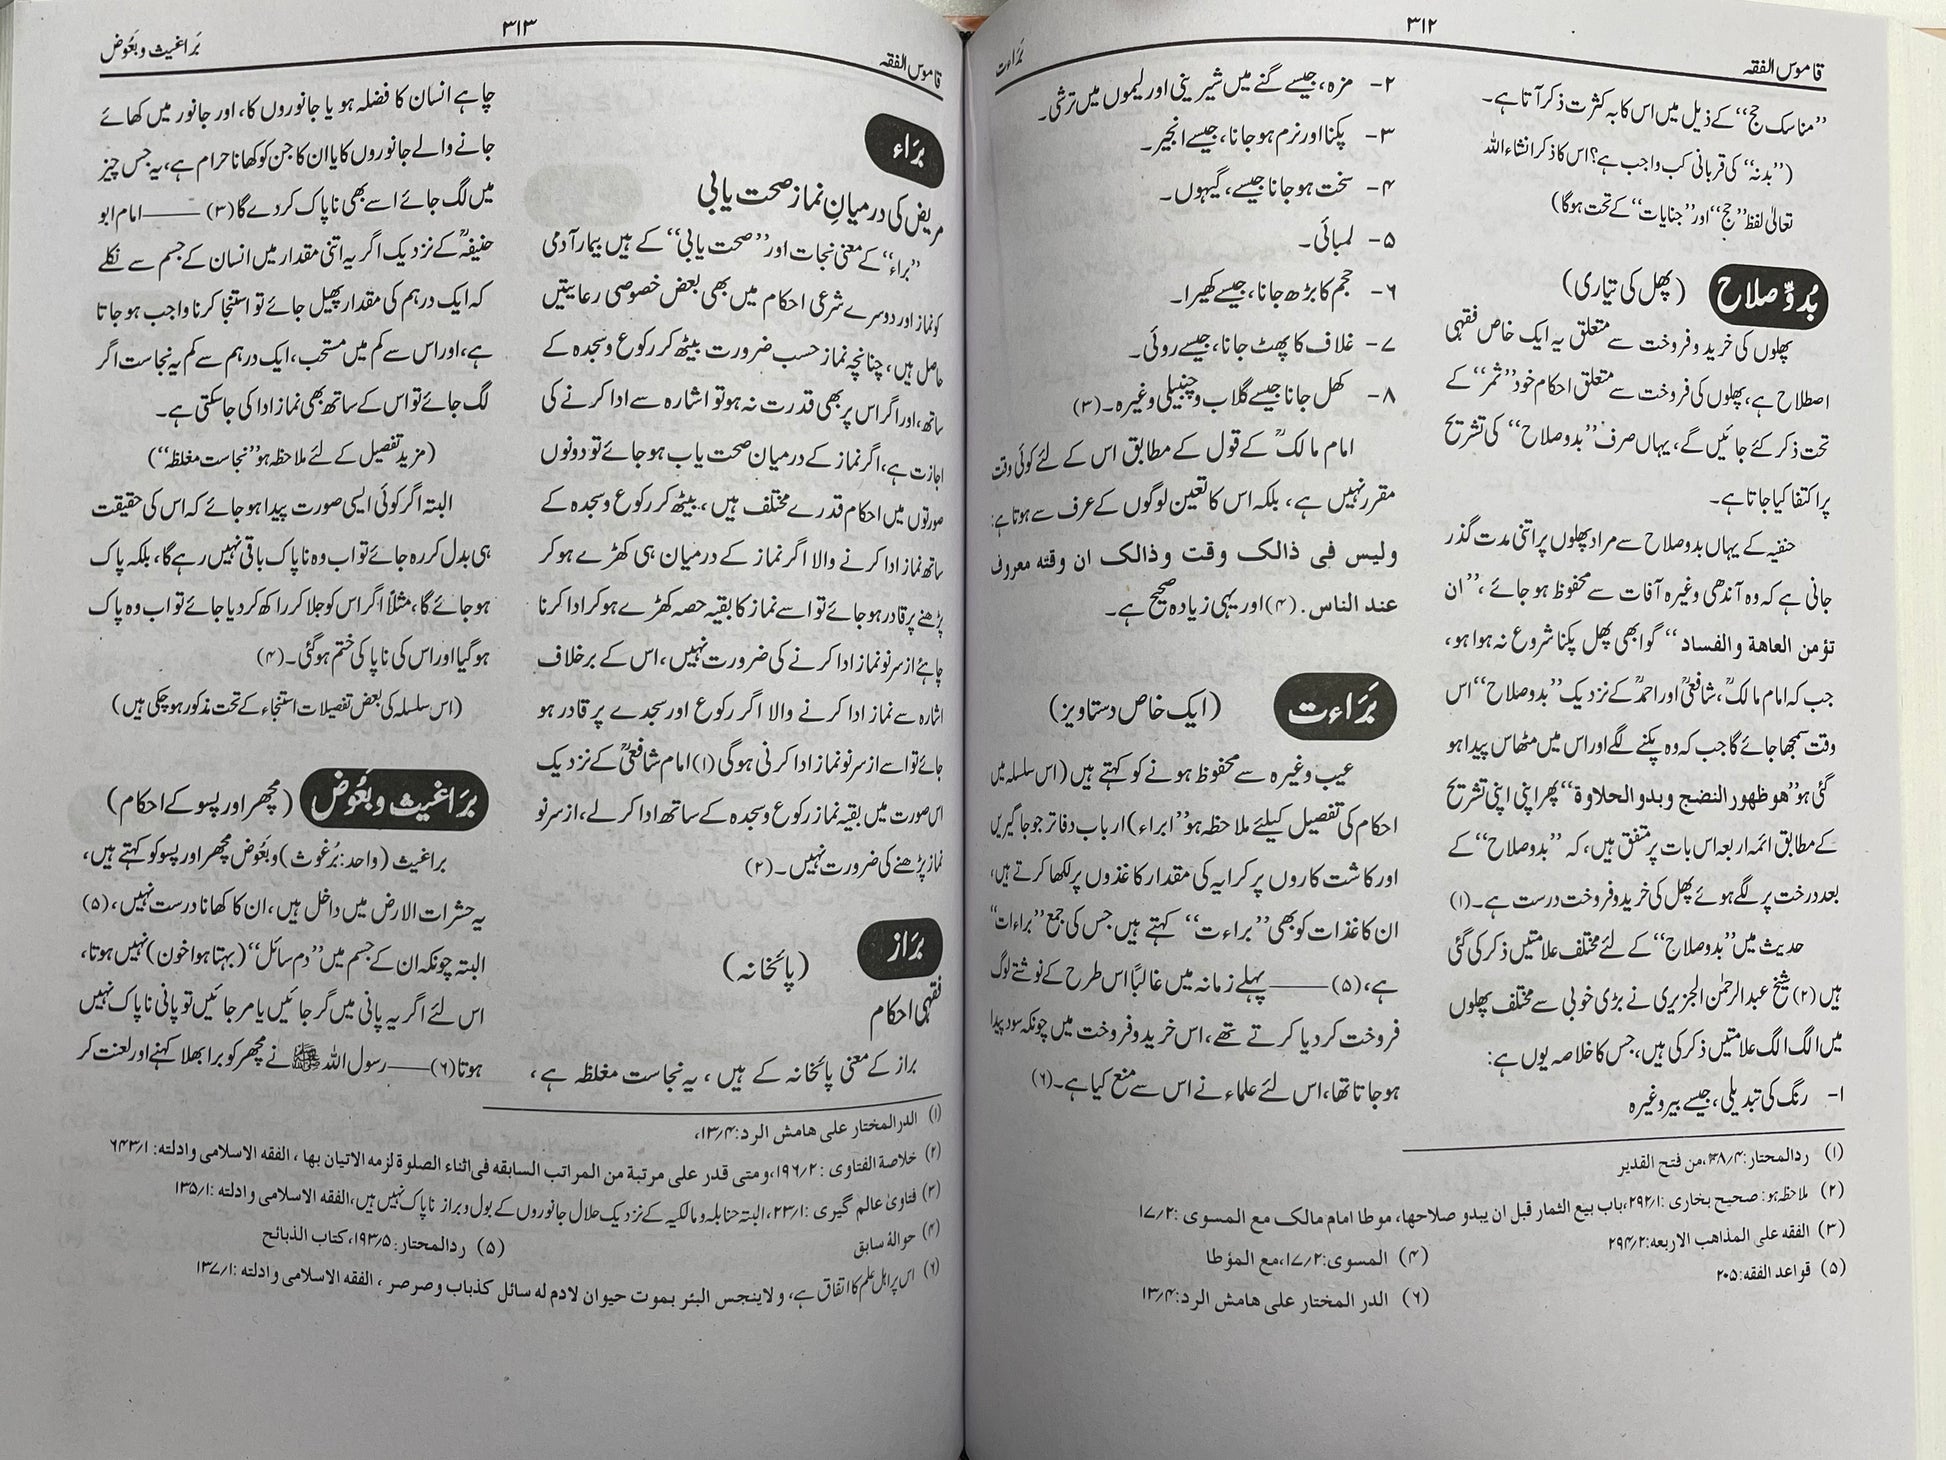 ۳۱۲
قاموس الفقہ
بَرَاءت
’’مناسک حج‘‘ کے ذیل میں اس کا بہ کثرت ذکر آتا ہے۔
(’’بدنہ‘‘ کی قربانی کب واجب ہے؟ اس کا ذکر انشاء اللہ
تعالیٰ لفظ ’’حج‘‘ اور ’’جنایات‘‘ کے تحت ہوگا)
بُدوِّ صلاح (پھل کی تیاری)
پھلوں کی خرید و فروخت سے متعلق یہ ایک خاص فقہی
اصطلاح ہے، پھلوں کی فروخت سے متعلق احکام خود ’’ثمر‘‘ کے
تحت ذکر کئے جائیں گے، یہاں صرف ’’بدو صلاح‘‘ کی تشریح
پر اکتفا کیا جاتا ہے۔
حنفیہ کے یہاں بدو صلاح سے مراد پھلوں پر اتنی مدت گذر
جانی ہے کہ وہ آندھی وغیرہ آفات سے محفوظ ہو جائے، ’’ان
تؤمن العاهة والفساد‘‘ گو ابھی پھل پکنا شروع نہ ہوا ہو،
جب کہ امام مالکؒ، شافعیؒ اور احمدؒ کے نزدیک ’’بدو صلاح‘‘ اس
وقت سمجھا جائے گا جب کہ وہ پکنے لگے اور اس میں مٹھاس پیدا ہو
گئی ہو ’’هو ظهور النضج وبدو الحلاوة‘‘ پھر اپنی اپنی تشریح
کے مطابق ائمہ اربعہ اس بات پر متفق ہیں، کہ ’’بدو صلاح‘‘ کے
بعد درخت پر لگے ہوئے پھل کی خرید و فروخت درست ہے۔ (۱)
حدیث میں ’’بدو صلاح‘‘ کے لئے مختلف علامتیں ذکر کی گئی
ہیں (۲) شیخ عبدالرحمٰن الجزیری نے بڑی خوبی سے مختلف پھلوں
میں الگ الگ علامتیں ذکر کی ہیں، جس کا خلاصہ یوں ہے:
۱- رنگ کی تبدیلی، جیسے بیر وغیرہ
۲- مزہ، جیسے گنے میں شیرینی اور لیموں میں ترشی۔
۳- پکنا اور نرم ہو جانا، جیسے انجیر۔
۴- سخت ہو جانا جیسے، گیہوں۔
۵- لمبائی۔
۶- حجم کا بڑھ جانا، جیسے کھیرا۔
۷- غلاف کا پھٹ جانا، جیسے روئی۔
۸- کھل جانا جیسے گلاب و چنبیلی وغیرہ۔ (۳)
امام مالکؒ کے قول کے مطابق اس کے لئے کوئی وقت
مقرر نہیں ہے، بلکہ اس کا تعین لوگوں کے عرف سے ہوتا ہے:
وليس فى ذالک وقت وذالک ان وقته معروف
عند الناس. (۴) اور یہی زیادہ صحیح ہے۔
بَرَاءت (ایک خاص دستاویز)
عیب وغیرہ سے محفوظ ہونے کو کہتے ہیں (اس سلسلہ میں
احکام کی تفصیل کیلئے ملاحظہ ہو ’’ابراء‘‘) ارباب دفاتر جو جاگیریں
اور کاشت کاروں پر کرایہ کی مقدار کاغذوں پر لکھا کرتے ہیں،
ان کاغذات کو بھی ’’براءت‘‘ کہتے ہیں جس کی جمع ’’براءات‘‘
ہے، (۵) —— پہلے زمانہ میں غالباً اس طرح کے نوشتے لوگ
فروخت کر دیا کرتے تھے، اس خرید و فروخت میں چونکہ سود پیدا
ہو جاتا تھا، اس لئے علماء نے اس سے منع کیا ہے۔ (۶)
(۱) ردالمحتار: ۴/۳۸، من فتح القدیر
(۲) ملاحظہ ہو: صحیح بخاری: ۱/۲۹۲، باب بیع الثمار قبل ان یبدو صلاحها، موطا امام مالک مع المسوی: ۲/۱۷
(۳) الفقه علی المذاهب الاربعه: ۲/۲۹۴
(۴) المسوی: ۲/۱۷، مع المؤطا
(۵) قواعد الفقه: ۲۰۵
(۶) الدر المختار علی هامش الرد: ۴/۱۳
۳۱۳
قاموس الفقہ
بَرَاغیث و بَعُوض
بَرَاء
مریض کی درمیانِ نماز صحت یابی
’’براء‘‘ کے معنی نجات اور ’’صحت یابی‘‘ کے ہیں بیمار آدمی
کو نماز اور دوسرے شرعی احکام میں بھی بعض خصوصی رعایتیں
حاصل ہیں، چنانچہ نماز حسب ضرورت بیٹھ کر رکوع و سجدہ کے
ساتھ، اور اگر اس پر بھی قدرت نہ ہو تو اشارہ سے ادا کرنے کی
اجازت ہے، اگر نماز کے درمیان صحت یاب ہو جائے تو دونوں
صورتوں میں احکام قدرے مختلف ہیں، بیٹھ کر رکوع و سجدہ کے
ساتھ نماز ادا کرنے والا اگر نماز کے درمیان ہی کھڑے ہو کر
پڑھنے پر قادر ہو جائے تو اسے نماز کا بقیہ حصہ کھڑے ہو کر ادا کرنا
چاہئے از سر نو نماز ادا کرنے کی ضرورت نہیں، اس کے برخلاف
اشارہ سے نماز ادا کرنے والا اگر رکوع اور سجدے پر قادر ہو
جائے تو اسے از سر نو نماز ادا کرنی ہوگی (۱) امام شافعیؒ کے نزدیک
اس صورت میں بقیہ نماز رکوع و سجدہ کے ساتھ ادا کر لے، از سر نو
نماز پڑھنے کی ضرورت نہیں۔ (۲)
بَراز (پائخانہ)
فقہی احکام
براز کے معنی پائخانہ کے ہیں، یہ نجاست مغلظہ ہے،
چاہے انسان کا فضلہ ہو یا جانوروں کا، اور جانور میں کھائے
جانے والے جانوروں کا یا ان کا جن کو کھانا حرام ہے، یہ جس چیز
میں لگ جائے اسے بھی ناپاک کر دے گا (۳) —— امام ابو
حنیفہؒ کے نزدیک اگر یہ اتنی مقدار میں انسان کے جسم سے نکلے
کہ ایک درہم کی مقدار پھیل جائے تو استنجا کرنا واجب ہو جاتا
ہے، اور اس سے کم میں مستحب، ایک درہم سے کم یہ نجاست اگر
لگ جائے تو اس کے ساتھ بھی نماز ادا کی جاسکتی ہے۔
(مزید تفصیل کے لئے ملاحظہ ہو ’’نجاست مغلظہ‘‘)
البتہ اگر کوئی ایسی صورت پیدا ہو جائے کہ اس کی حقیقت
ہی بدل کر رہ جائے تو اب وہ ناپاک باقی نہیں رہے گا، بلکہ پاک
ہو جائے گا، مثلاً اگر اس کو جلا کر راکھ کر دیا جائے تو اب وہ پاک
ہو گیا اور اس کی ناپاکی ختم ہو گئی۔ (۴)
(اس سلسلہ کی بعض تفصیلات استنجاء کے تحت مذکور ہو چکی ہیں)
بَرَاغیث و بَعُوض (مچھر اور پسو کے احکام)
براغیث (واحد: بُرغوث) و بَعُوض مچھر اور پسو کو کہتے ہیں،
یہ حشرات الارض میں داخل ہیں، ان کا کھانا درست نہیں، (۵)
البتہ چونکہ ان کے جسم میں ’’دم سائل‘‘ (بہتا ہوا خون) نہیں ہوتا،
اس لئے اگر یہ پانی میں گر جائیں یا مر جائیں تو پانی ناپاک نہیں
ہوتا (۶) —— رسول اللہ ﷺ نے مچھر کو برا بھلا کہنے اور لعنت کر
(۱) الدرالمختار علی هامش الرد: ۴/۱۳،
(۲) خلاصة الفتاوی: ۲/۱۹۶، ومتی قدر علی مرتبة من المراتب السابقه فی اثناء الصلوة لزمه الاتیان بها، الفقه الاسلامی وادلته: ۱/۶۴۳
(۳) فتاویٰ عالم گیری: ۱/۲۳، البتہ حنابلہ و مالکیہ کے نزدیک حلال جانوروں کے بول و براز ناپاک نہیں ہیں، الفقه الاسلامی وادلته: ۱/۱۳۵
(۴) حوالۂ سابق
(۵) ردالمحتار: ۵/۱۹۳، کتاب الذبائح
(۶) اس پر اہل علم کا اتفاق ہے، ولاینجس البئر بموت حیوان لادم له سائل کذباب وصرصر، الفقه الاسلامی وادلته: ۱/۱۳۷